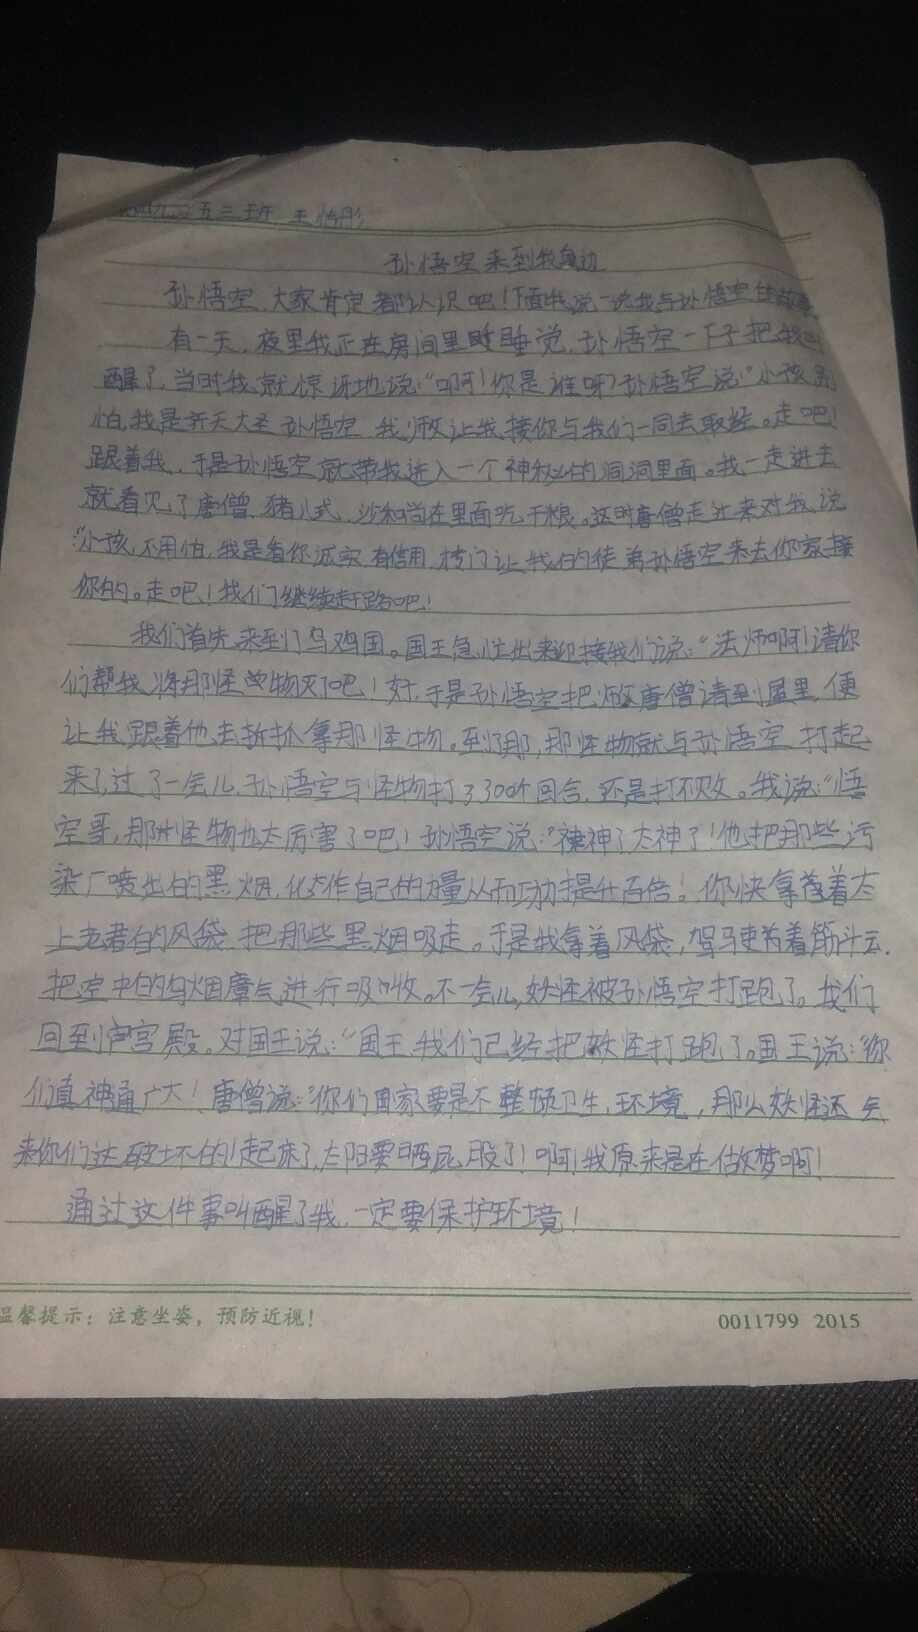 五三班 王怡彤
孙悟空来到我身边
孙悟空,大家肯定都认识吧!下面我说一说我与孙悟空的故事
有一天,夜里我正在房间里睡觉,孙悟空一下子把我叫
醒了,当时我就惊讶地说:“啊!你是谁呀?孙悟空说:“小孩别
怕,我是齐天大圣孙悟空,我师父让我接你与我们一同去取经。走吧!
跟着我,于是孙悟空就带我进入一个神秘的洞洞里面。我一走进去
就看见了唐僧、猪八戒、沙和尚在里面吃干粮。这时唐僧走过来对我说
:“小孩,不用怕,我是看你诚实,有信用,专门让我的徒弟孙悟空来去你家接
你的。走吧!我们继续赶路吧!
我们首先来到了乌鸡国。国王急忙出来迎接我们说:“法师啊!请你
们帮我将那怪物灭了吧!好,于是孙悟空把师父唐僧请到屋里,便
让我跟着他去抓拿那怪物。到了那,那怪物就与孙悟空打起
来了,过了一会儿,孙悟空与怪物打了300个回合,还是打不败。我说:“悟
空哥,那怪物也太厉害了吧!孙悟空说:“神了太神了!他把那些污
染厂喷出的黑烟,化作自己的力量从而功提升百倍!你快拿着太
上老君的风袋,把那些黑烟吸走。于是我拿着风袋,驾驶着筋斗云,
把空中的乌烟瘴气进行吸收。不一会儿,妖怪被孙悟空打跑了。我们
回到宫殿。对国王说:“国王,我们已经把妖怪打跑了。国王说:“你
们真神通广大!唐僧说:“你们国家要是不整顿卫生,环境,那么妖怪还会
来你们这破坏的!起床了,太阳要晒屁股了!啊!我原来是在做梦啊!
通过这件事叫醒了我,一定要保护环境!
温馨提示:注意坐姿,预防近视!
0011799 2015